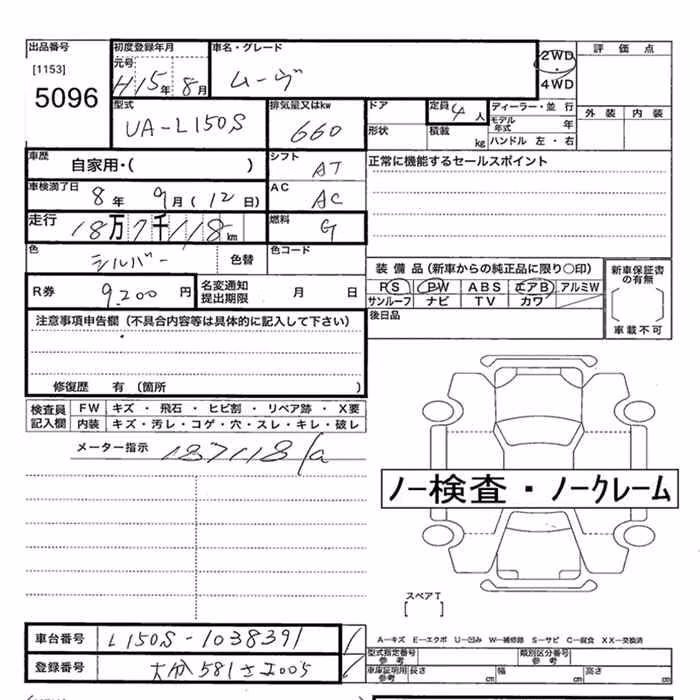 出品番号 初度登録年月 車名・グレード 2WD 評価点
[1153] 元号 ムーヴ 4WD
5096 H15年8月
型式 排気量又はkw ドア 定員 4人 ディーラー・並行 外装 内装
UA-L150S 660 形状 積載 kg モデル年式 年
ハンドル 左・右
車歴 自家用・( ) シフト AT 正常に機能するセールスポイント
車検満了日 8年 9月(12日) AC AC
走行 18万7千118km 燃料 G
色 シルバー 色替 色コード
R券 9,200円 名変通知提出期限 月 日
装備品(新車からの純正品に限り○印) 新車保証書の有無
PS PW ABS エアB アルミW
サンルーフ ナビ TV カワ
後日品 車載不可
注意事項申告欄(不具合内容等は具体的に記入して下さい)
修復歴 有(箇所 )
検査員記入欄 FW キズ・飛石・ヒビ割・リペア跡・X要
内装 キズ・汚レ・コゲ・穴・スレ・キレ・破レ
メーター指示 187118
ノー検査・ノークレーム
スペアT
[ ]
A-キズ E-エクボ U-凹み W-補修跡 S-サビ C-腐食 XX-交換済
車台番号 L150S-1038391 型式指定番号 参考 類別区分番号 参考
登録番号 大分581さ2005 車庫証明用 参考 長さ cm 幅 cm 高さ cm